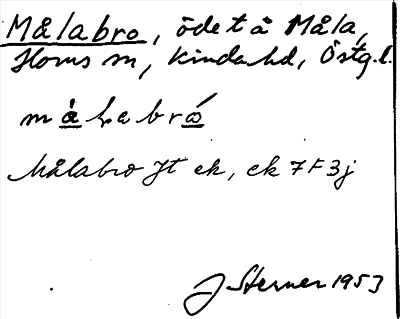 Målabro, öde t å Måla,
Horns sn, Kinda hd, Östg.l.
målabró
Målabro Jt ek, ek 7F3j
J Sterner 1953